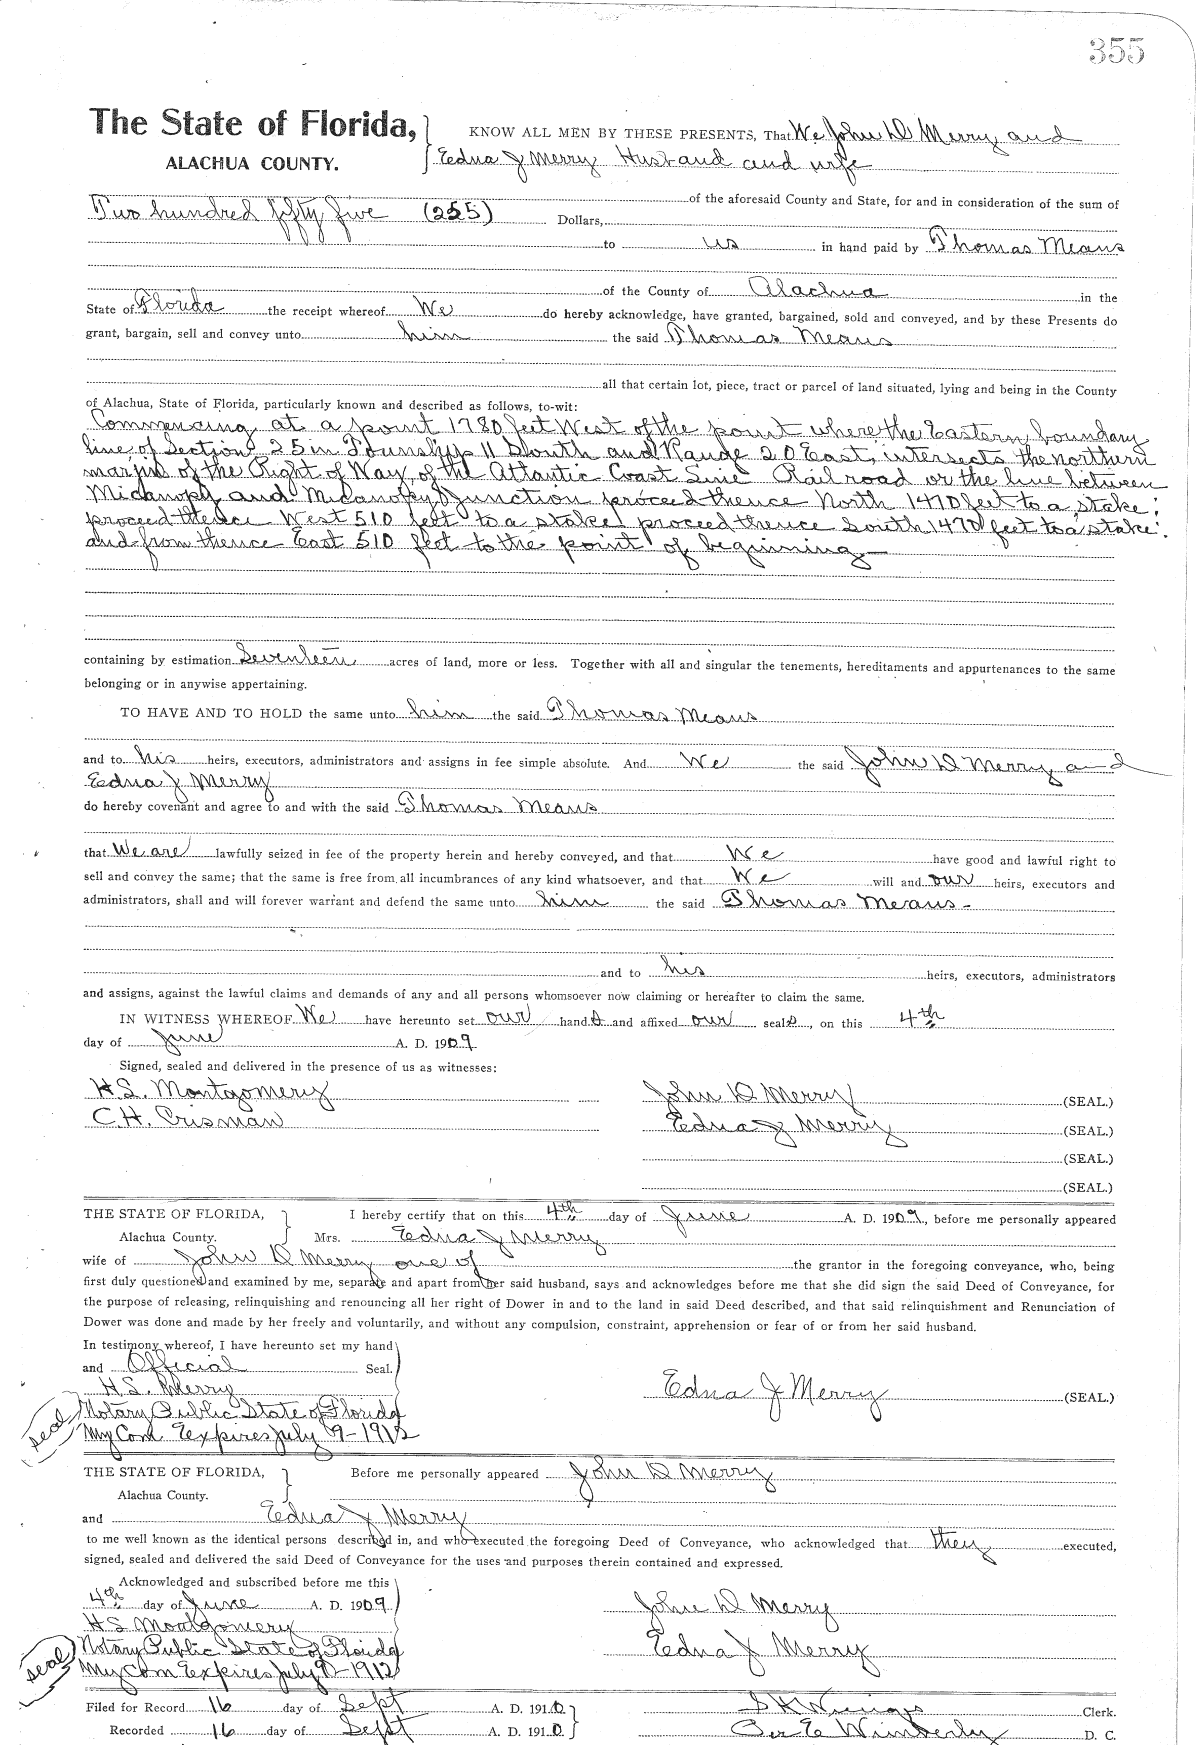 355
The State of Florida,
ALACHUA COUNTY.
KNOW ALL MEN BY THESE PRESENTS, That We John D Merry and
Edna J Merry Husband and wife
of the aforesaid County and State, for and in consideration of the sum of
Two hundred fifty five (255) Dollars,
to us in hand paid by Thomas Means
of the County of Alachua in the
State of Florida the receipt whereof We do hereby acknowledge, have granted, bargained, sold and conveyed, and by these Presents do
grant, bargain, sell and convey unto him the said Thomas Means
all that certain lot, piece, tract or parcel of land situated, lying and being in the County
of Alachua, State of Florida, particularly known and described as follows, to-wit:
Commencing at a point 1780 feet West of the point where the Eastern boundary
line of Section 25 in Township 11 South and Range 20 East, intersects the northern
margin of the Right of Way, of the Atlantic Coast Line Railroad or the line between
Micanopy and Micanopy Junction proceed thence North 1470 feet to a stake;
proceed thence West 510 feet to a stake proceed thence South 1470 feet to a stake;
and from thence East 510 feet to the point of beginning—
containing by estimation Seventeen acres of land, more or less. Together with all and singular the tenements, hereditaments and appurtenances to the same
belonging or in anywise appertaining.
TO HAVE AND TO HOLD the same unto him the said Thomas Means
and to his heirs, executors, administrators and assigns in fee simple absolute. And We the said John D Merry and
Edna J Merry
do hereby covenant and agree to and with the said Thomas Means
that We are lawfully seized in fee of the property herein and hereby conveyed, and that We have good and lawful right to
sell and convey the same; that the same is free from all incumbrances of any kind whatsoever, and that We will and our heirs, executors and
administrators, shall and will forever warrant and defend the same unto him the said Thomas Means-
and to his heirs, executors, administrators
and assigns, against the lawful claims and demands of any and all persons whomsoever now claiming or hereafter to claim the same.
IN WITNESS WHEREOF We have hereunto set our hands and affixed our seals, on this 4th
day of June A. D. 1909
Signed, sealed and delivered in the presence of us as witnesses:
H.S. Montgomery John D Merry (SEAL.)
C.H. Crisman Edna J Merry (SEAL.)
(SEAL.)
(SEAL.)
THE STATE OF FLORIDA, I hereby certify that on this 4th day of June A. D. 1909, before me personally appeared
Alachua County. Mrs. Edna J Merry
wife of John D Merry one of the grantor in the foregoing conveyance, who, being
first duly questioned and examined by me, separate and apart from her said husband, says and acknowledges before me that she did sign the said Deed of Conveyance, for
the purpose of releasing, relinquishing and renouncing all her right of Dower in and to the land in said Deed described, and that said relinquishment and Renunciation of
Dower was done and made by her freely and voluntarily, and without any compulsion, constraint, apprehension or fear of or from her said husband.
In testimony whereof, I have hereunto set my hand
and Official Seal.
H.S. Merry Edna J Merry (SEAL.)
seal Notary Public State of Florida
My Com Expires July 9-1912
THE STATE OF FLORIDA, Before me personally appeared John D Merry
Alachua County.
and Edna J Merry
to me well known as the identical persons described in, and who executed the foregoing Deed of Conveyance, who acknowledged that they executed,
signed, sealed and delivered the said Deed of Conveyance for the uses and purposes therein contained and expressed.
Acknowledged and subscribed before me this
4th day of June A. D. 1909 John D Merry
H S Montgomery
seal Notary Public State of Florida Edna J Merry
My Com Expires July 9-1912
Filed for Record 16 day of Sept A. D. 1910 Clerk.
Recorded 16 day of Sept A. D. 1910 E Wimberly D. C.